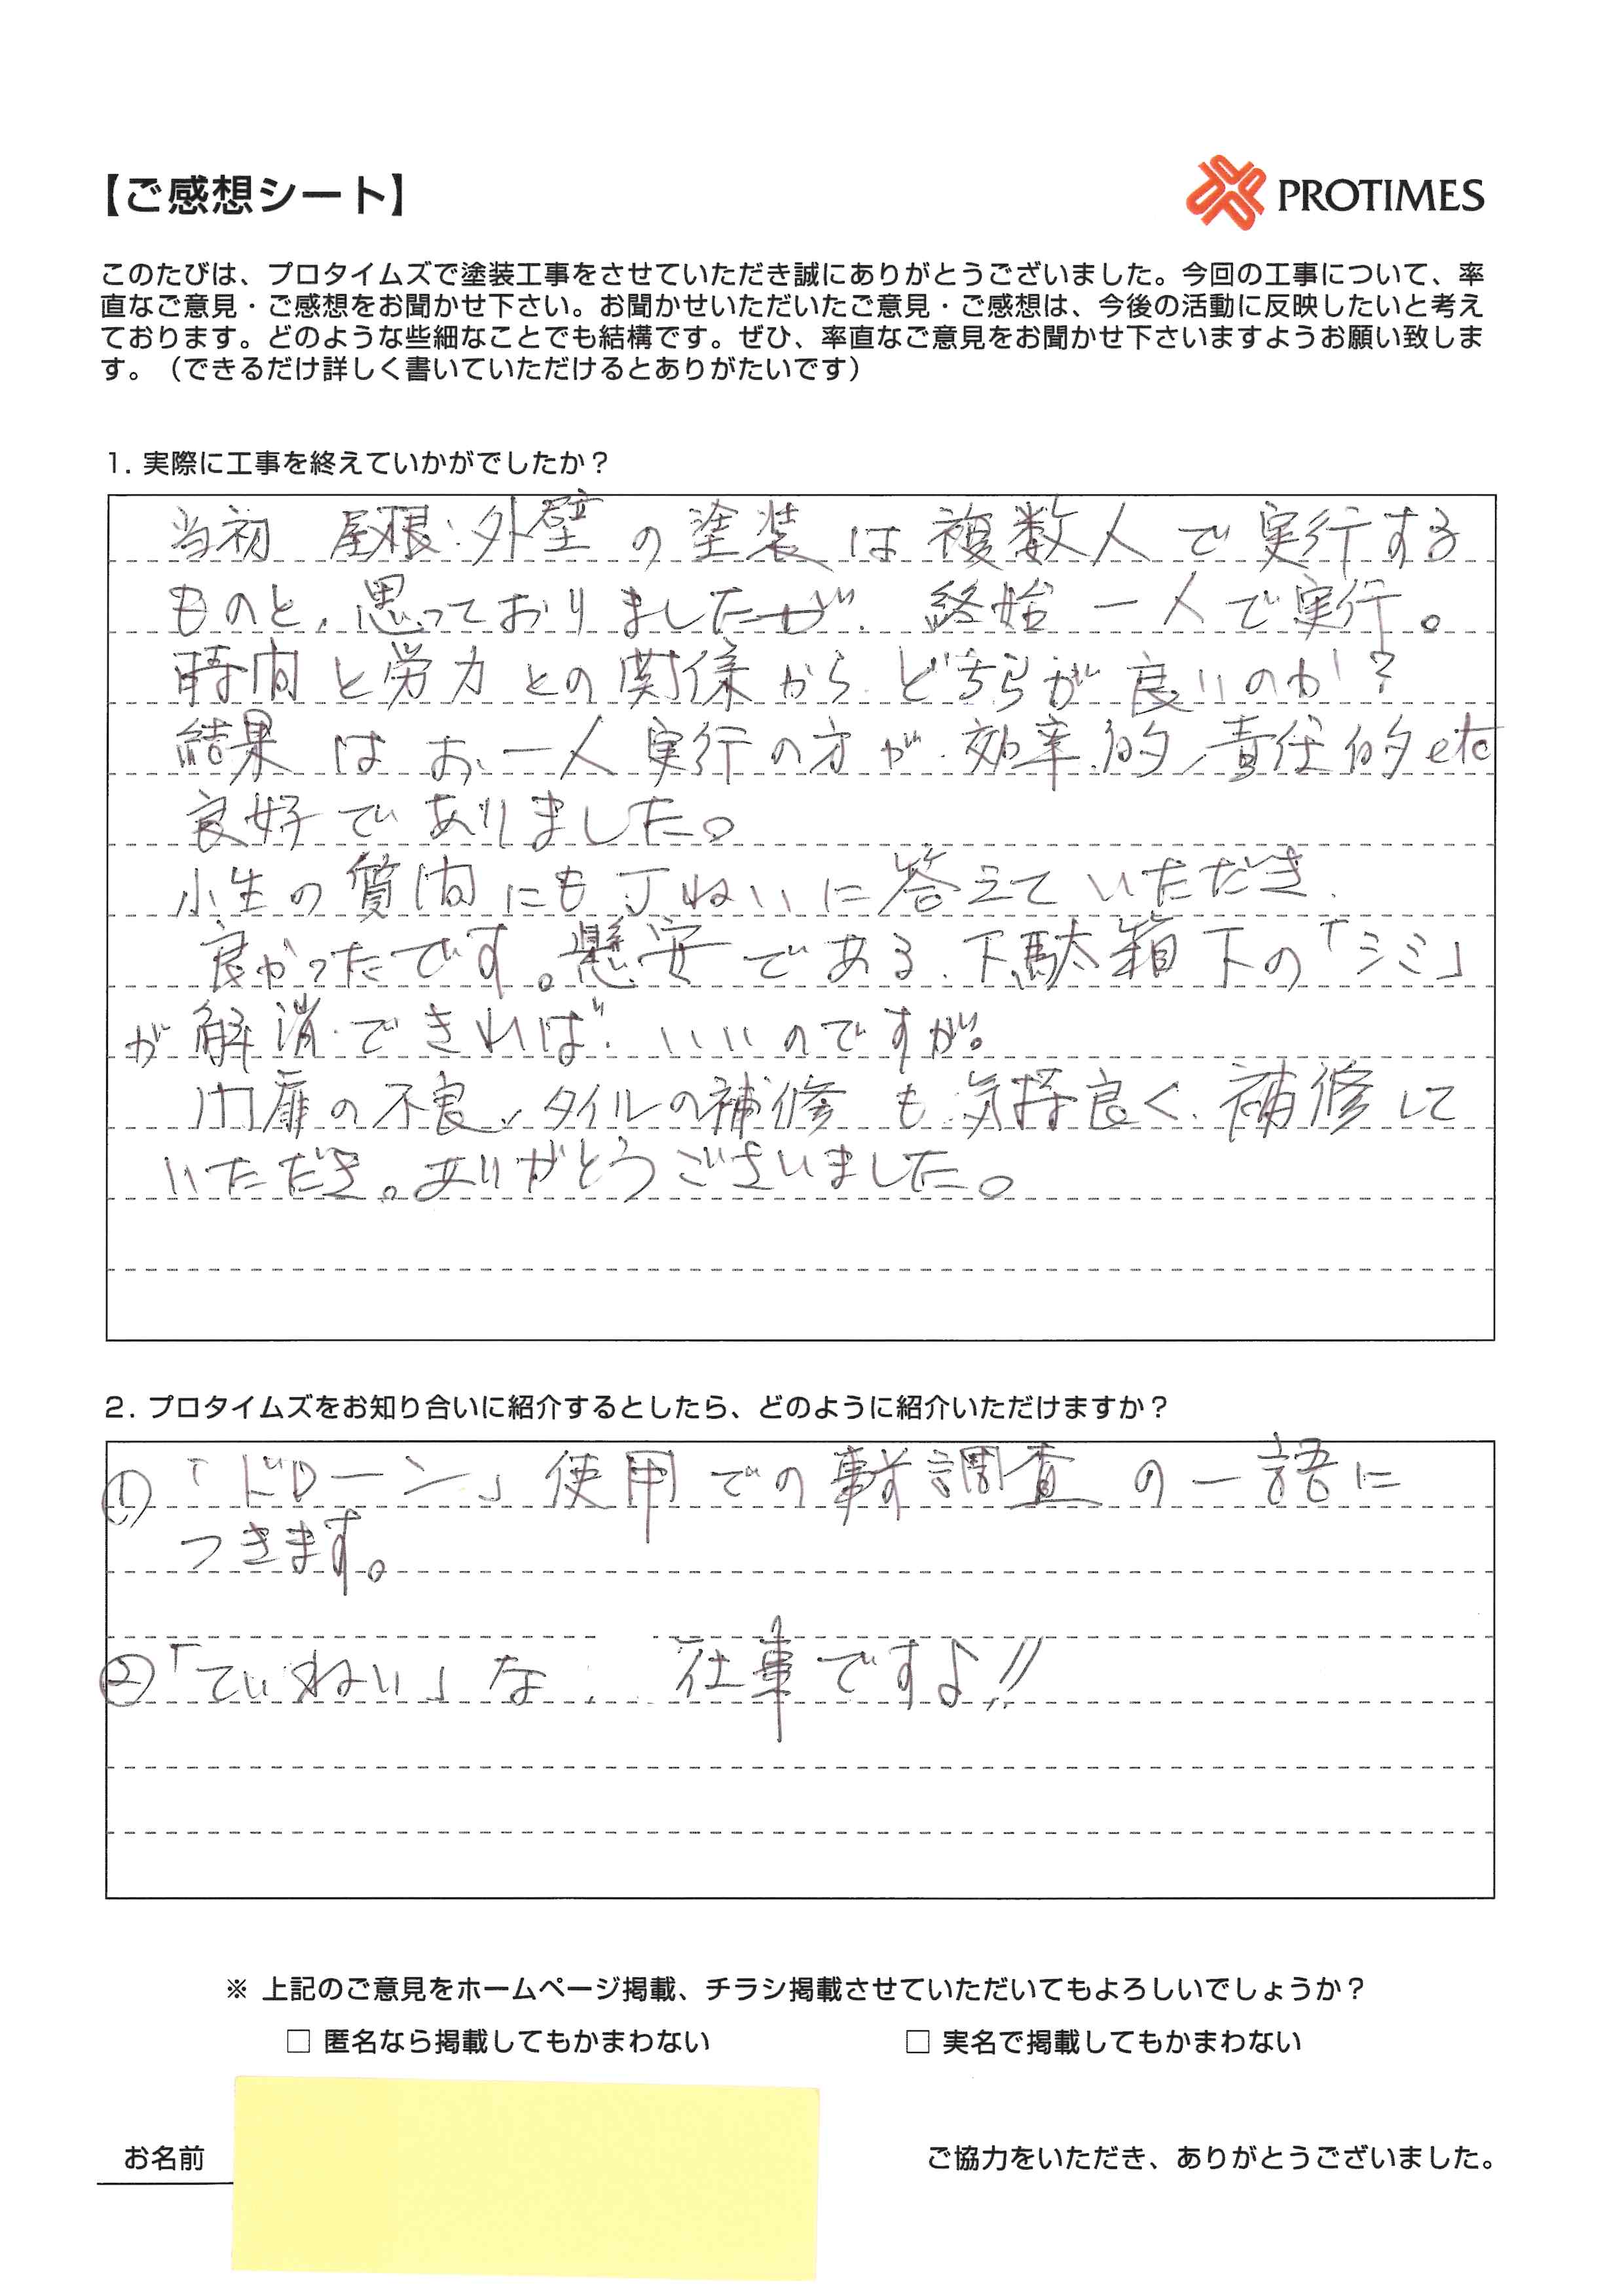 【ご感想シート】
PROTIMES
このたびは、プロタイムズで塗装工事をさせていただき誠にありがとうございました。今回の工事について、率
直なご意見・ご感想をお聞かせ下さい。お聞かせいただいたご意見・ご感想は、今後の活動に反映したいと考え
ております。どのような些細なことでも結構です。ぜひ、率直なご意見をお聞かせ下さいますようお願い致しま
す。（できるだけ詳しく書いていただけるとありがたいです）
1. 実際に工事を終えていかがでしたか？
当初 屋根・外壁の塗装は複数人で実行する
ものと、思っておりましたが、終始 一人で実行。
時間と労力との関係から、どちらが良いのか？
結果はお一人実行の方が、効率的、責任的etc
良好でありました。
小生の質問にも丁ねいに答えていただき、
良かったです。懸安である、下駄箱下の「シミ」
が解消できれば、いいのですが。
門扉の不良、タイルの補修も気持良く、補修して
いただき。ありがとうございました。
2. プロタイムズをお知り合いに紹介するとしたら、どのように紹介いただけますか？
① 「ドローン」使用での事前調査の一語に
つきます。
② 「ていねい」な、仕事ですよ!!
※ 上記のご意見をホームページ掲載、チラシ掲載させていただいてもよろしいでしょうか？
□ 匿名なら掲載してもかまわない □ 実名で掲載してもかまわない
お名前 ご協力をいただき、ありがとうございました。